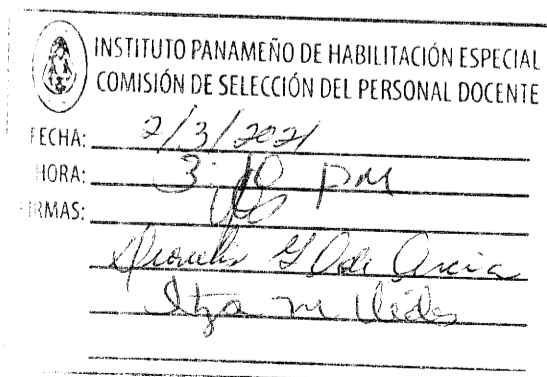 INSTITUTO PANAMEÑO DE HABILITACIÓN ESPECIAL
COMISIÓN DE SELECCIÓN DEL PERSONAL DOCENTE
FECHA: 2/3/2021
HORA: 3:10 pm
FIRMAS:
de Arcia
Itza M